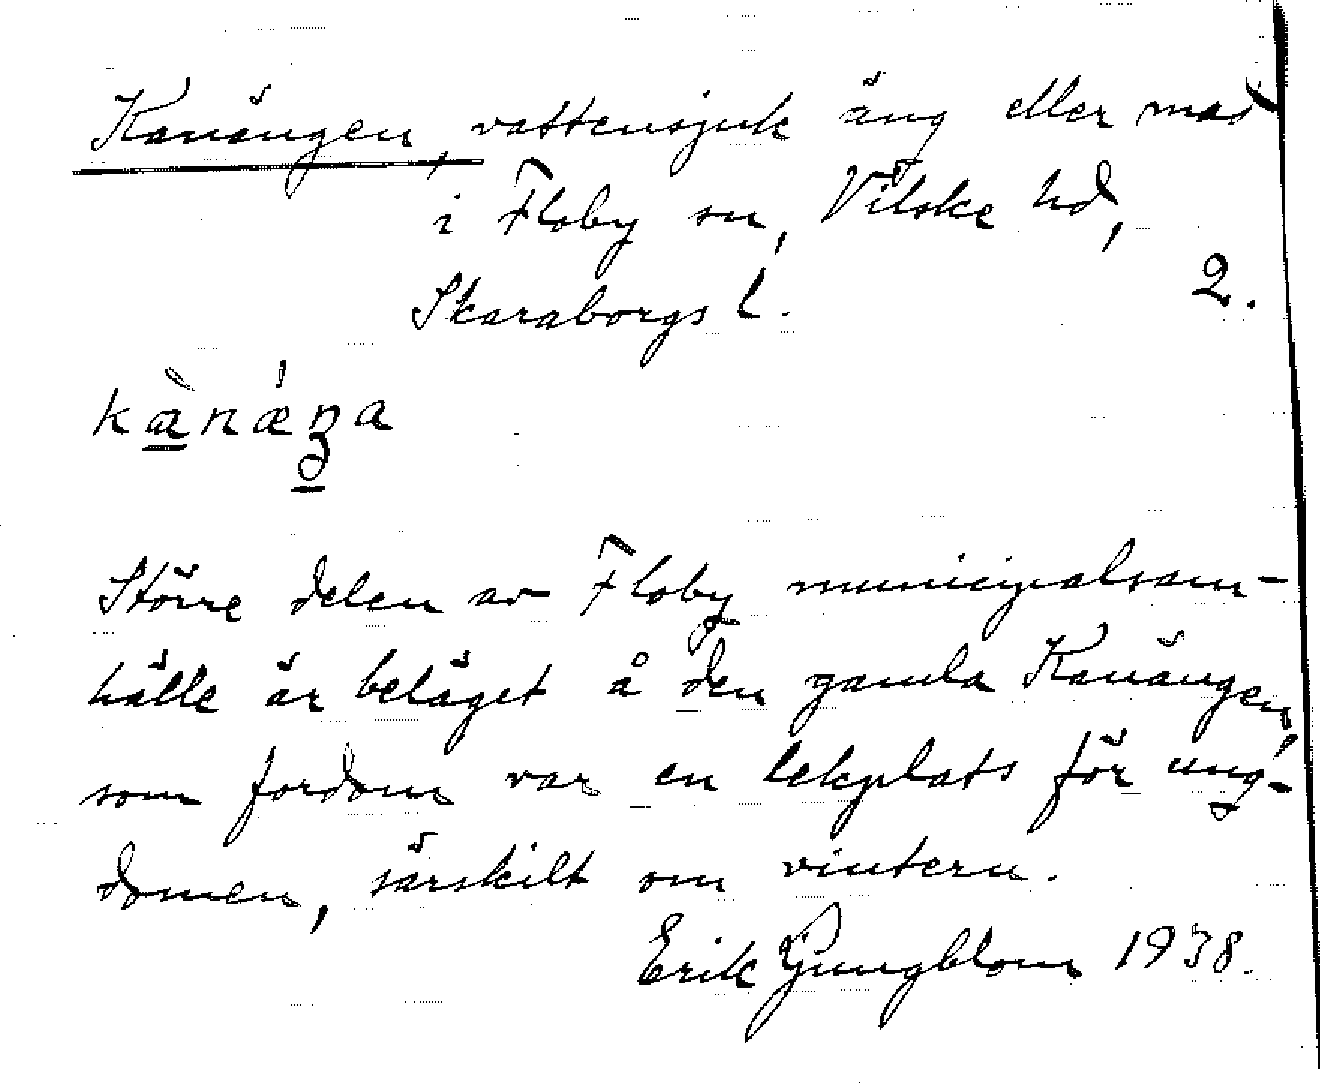 Kanängen, vattensjuk äng eller mad
i Floby sn, Vilske hd,
Skaraborgs l.
2.
kànǽŋa
Större delen av Floby municipalsam-
hälle är beläget å den gamla Kanängen,
som fordom var en lekplats för ung-
domen, särskilt om vintern.
Erik Ljungblom 1938.